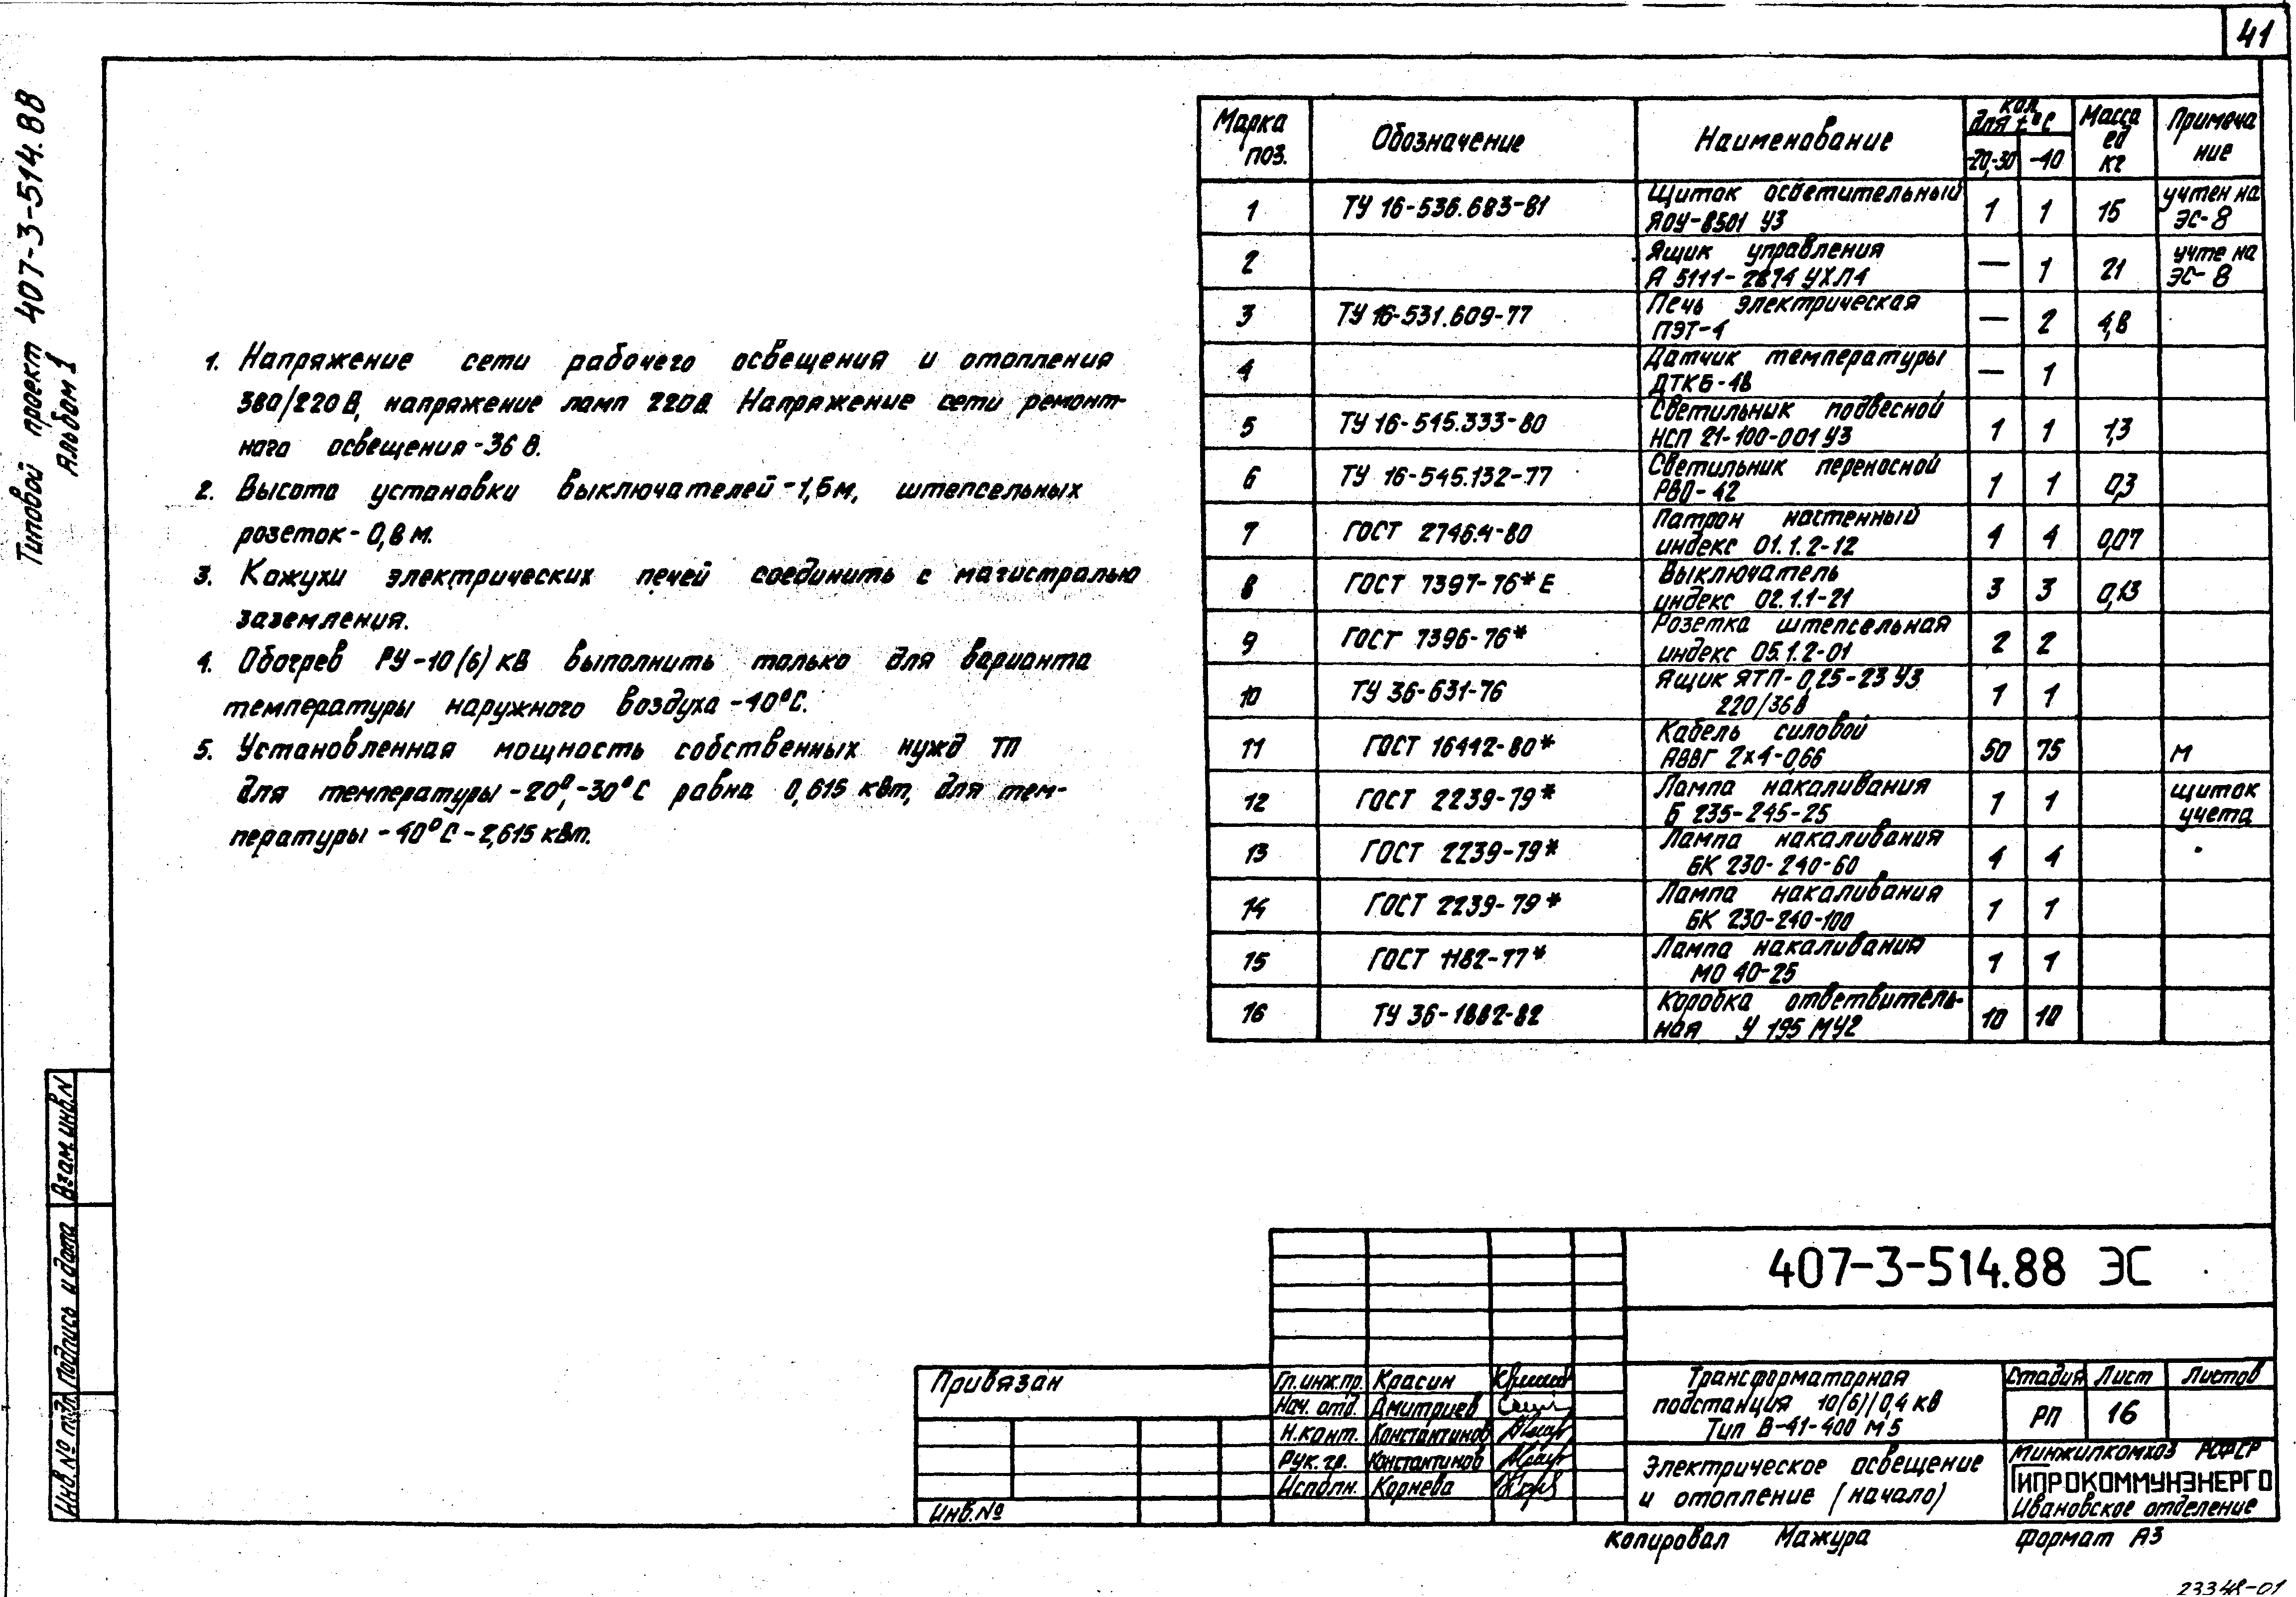 41
Типовой проект 407-3-514.88
Альбом 1
1. Напряжение сети рабочего освещения и отопления
380/220 В, напряжение ламп 220 В. Напряжение сети ремонт-
ного освещения - 36 В.
2. Высота установки выключателей - 1,5 м, штепсельных
розеток - 0,8 м.
3. Кожухи электрических печей соединить с магистралью
заземления.
4. Обогрев РУ-10(6) кВ выполнить только для варианта
температуры наружного воздуха -40°С.
5. Установленная мощность собственных нужд ТП
для температуры -20°,-30°С равна 0,615 кВт, для тем-
пературы -40°С - 2,615 кВт.
Марка поз. Обозначение Наименование кол. для t°С -20,-30 -40 Масса ед кг Примеча ние
1 ТУ 16-536.683-81 Щиток осветительный ЯОУ-8501 У3 1 1 15 учтен на ЭС-8
2 Ящик управления Я 5111-2874 УХЛ4 — 1 21 учте на ЭС-8
3 ТУ 16-531.609-77 Печь электрическая ПЭТ-4 — 2 4,8
4 Датчик температуры ДТКБ-48 — 1
5 ТУ 16-545.333-80 Светильник подвесной НСП 21-100-001 У3 1 1 1,3
6 ТУ 16-545.132-77 Светильник переносной РВО-42 1 1 0,3
7 ГОСТ 2746.4-80 Патрон настенный индекс 01.1.2-12 4 4 0,07
8 ГОСТ 7397-76* Е Выключатель индекс 02.1.1-21 3 3 0,13
9 ГОСТ 7396-76* Розетка штепсельная индекс 05.1.2-01 2 2
10 ТУ 36-631-76 Ящик ЯТП-0,25-23 У3 220/36В 1 1
11 ГОСТ 16442-80* Кабель силовой АВВГ 2х4-0,66 50 75 м
12 ГОСТ 2239-79* Лампа накаливания Б 235-245-25 1 1 щиток учета
13 ГОСТ 2239-79* Лампа накаливания БК 230-240-60 4 4
14 ГОСТ 2239-79* Лампа накаливания БК 230-240-100 1 1
15 ГОСТ 1182-77* Лампа накаливания МО 40-25 1 1
16 ТУ 36-1882-82 Коробка ответвитель-ная У 195 МУ2 10 10
Взам. инв. N
Подпись и дата
Инв. № подл.
407-3-514.88 ЭС
Привязан
Инв. №
Гл. инж. пр. Красин
Нач. отд. Дмитриев
Н. конт. Константинов
Рук. гр. Константинов
Исполн. Корнева
Трансформаторная
подстанция 10(6)/0,4 кВ
Тип В-41-400 М5
Стадия Лист Листов
РП 16
Электрическое освещение
и отопление (начало)
Минжилкомхоз РСФСР
ГИПРОКОММУНЭНЕРГО
Ивановское отделение
Копировал Мажура Формат А3
23348-01